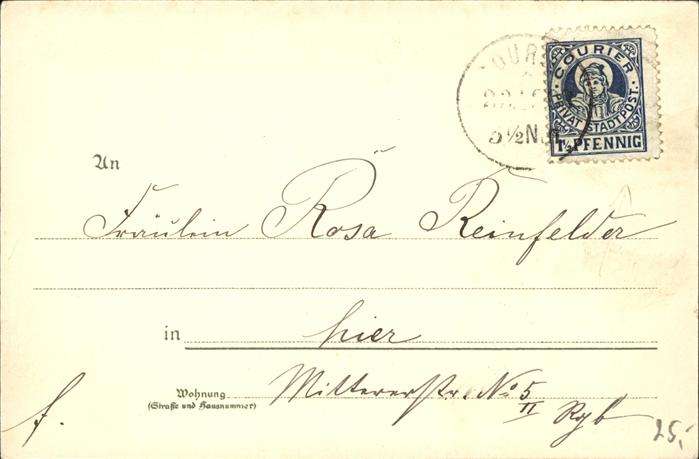 COURIER
PRIVAT STADTPOST.
1½ PFENNIG
5½N.
An
Fräulein Rosa Reinfelder
in hier
Wohnung Mittererstr. No 5
(Straße und Hausnummer) II Rgb
f.
25,-